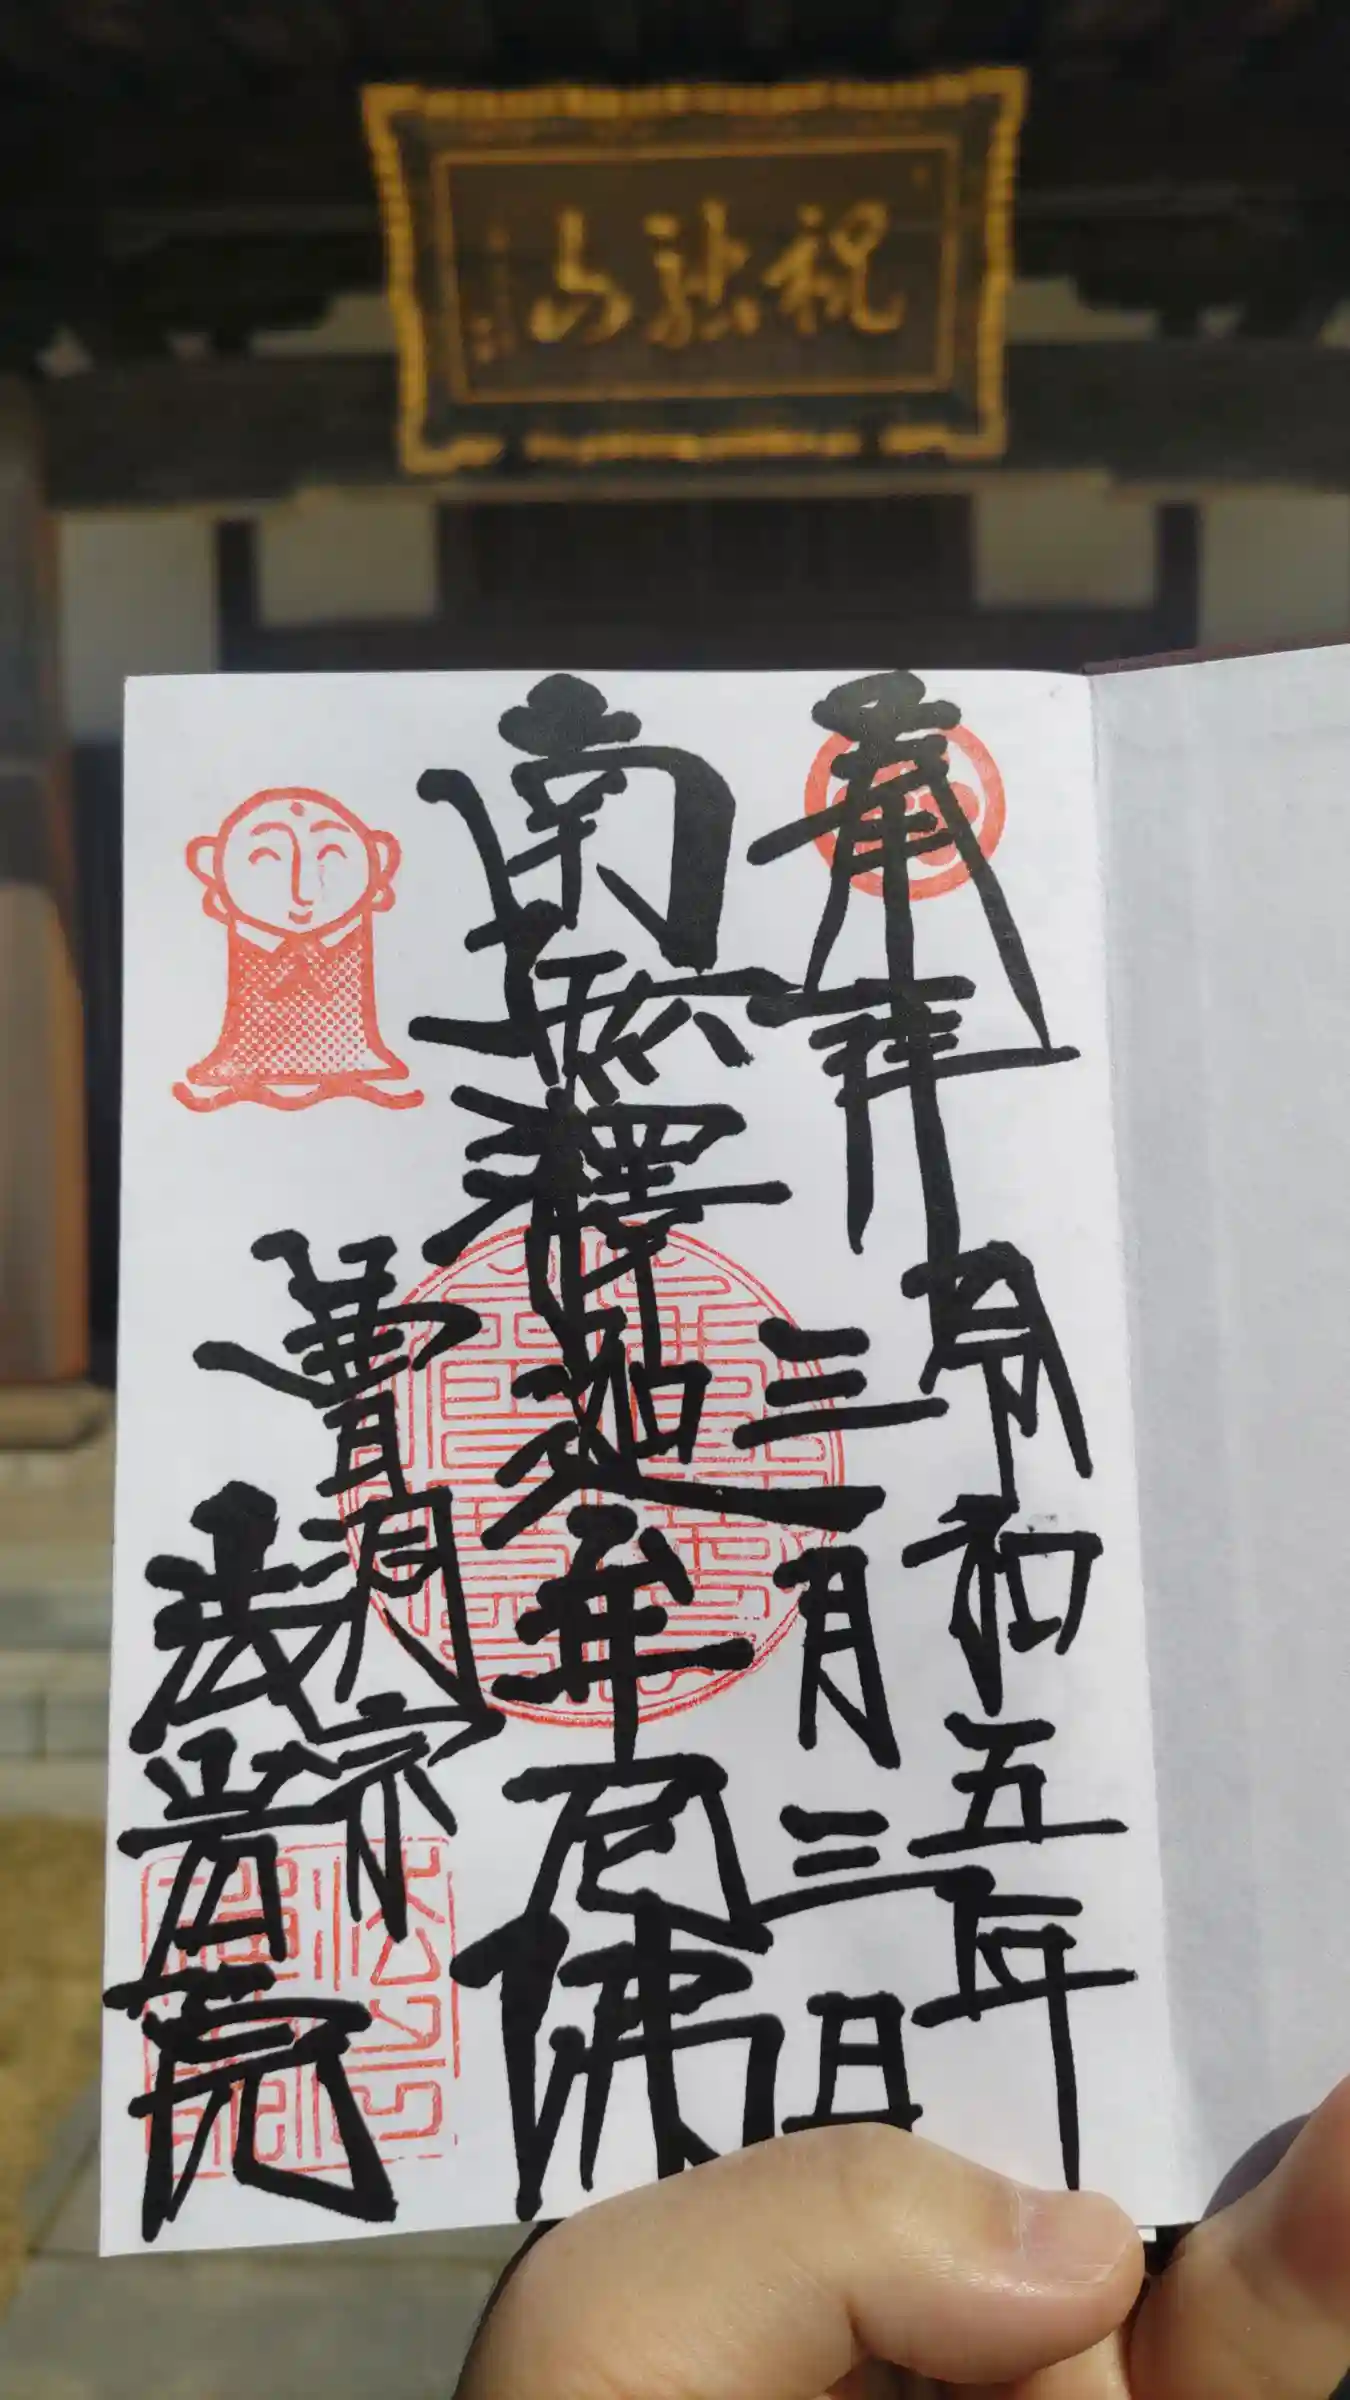 祝 山
奉拝
令和五年
三月三日
南無釋迦牟尼佛
曹洞宗
法岩院